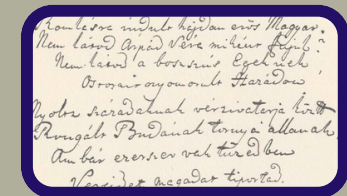 indult hajdan erős Magyar!
Nem látod Árpád Vére miként fajúl?
Nem látod a bosszús Egeknek
Ostorait nyomorult Hazádon
Nyoltz századoknak vérzivatarja közt
Rongált Budának tornyai állanak,
Ámbár ezerszer vak tüzedben
Véreidet magadat tiportad.